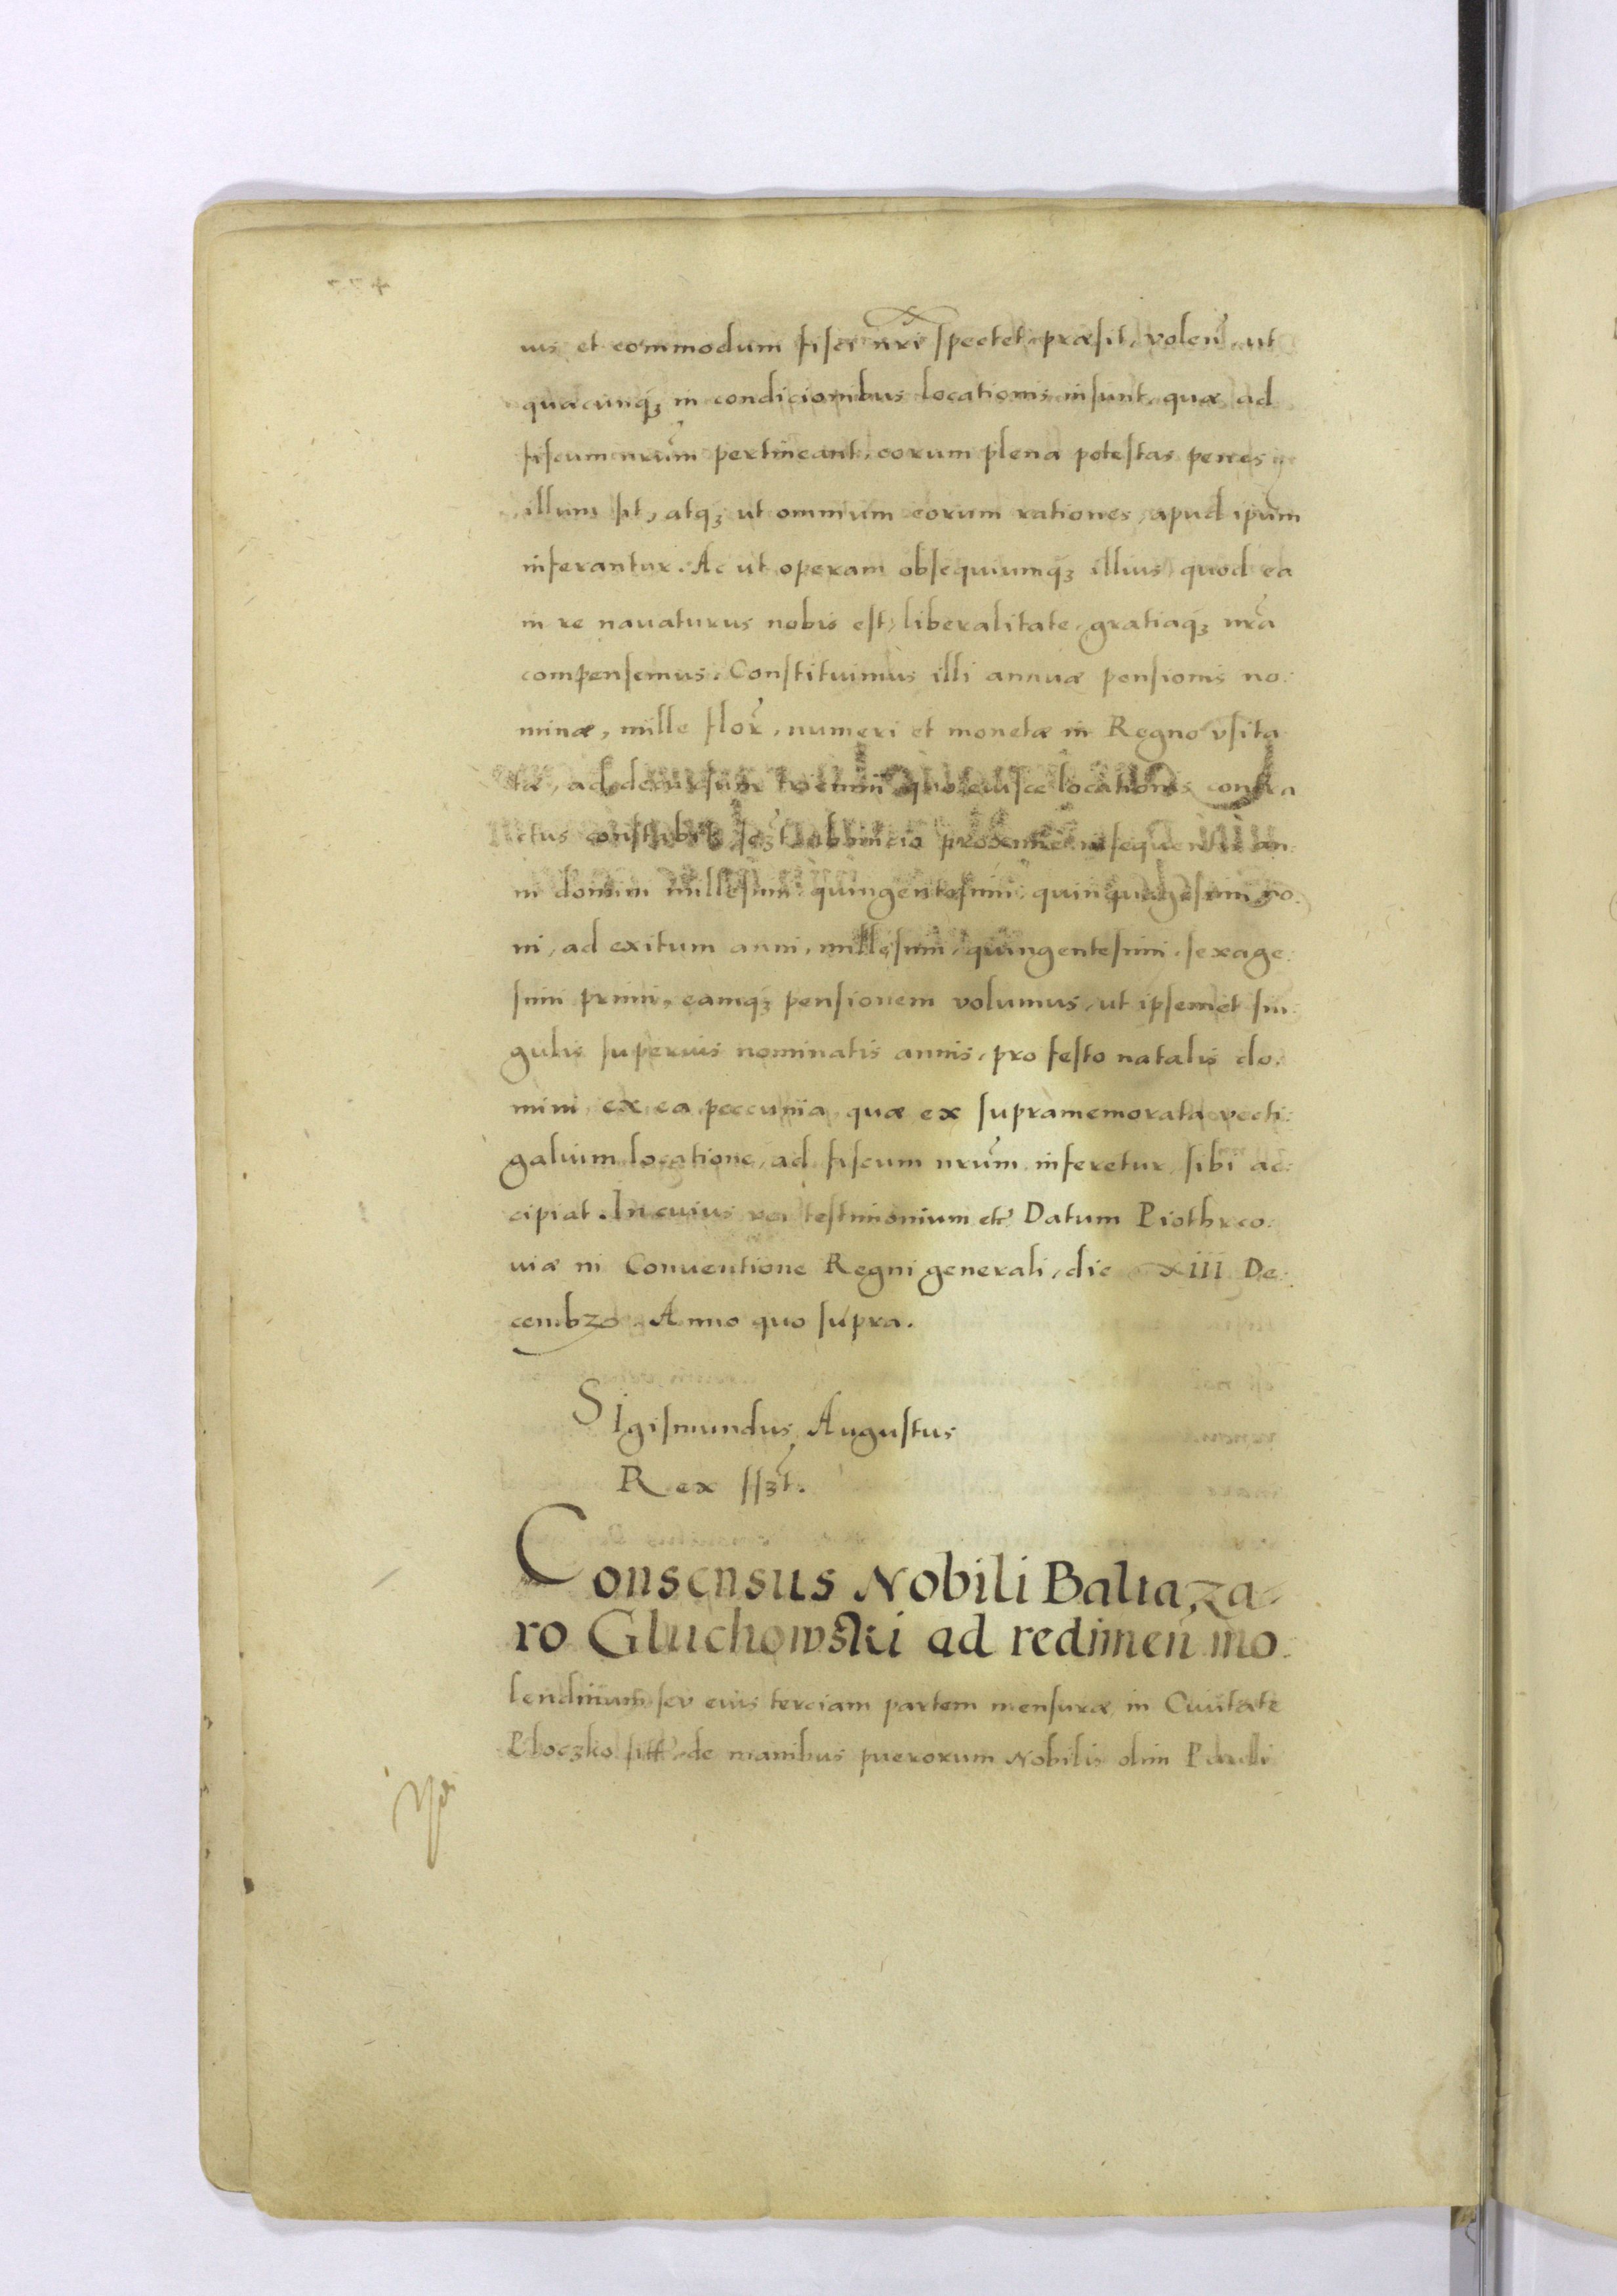 uis et commodum fisci nr̃i spectet præsit, volen̄, ut
quæcunqꝫ in condicionibus locationis insunt, quæ ad
fiscum nrũm pertineant, eorum plena potestas penes
illum sit, atqꝫ ut omnium eorum rationes, apud ip̃um
inferantur. Ac ut operam obsequiumqꝫ illius quod ea
in re nauaturus nobis est, liberalitate, gratiaqꝫ nr̃a
compensemus. Constituimus illi annuæ pensionis no:
minæ, mille flor̃, numeri et monetæ in Regno vsita
tæ, ad decursum triennii quo eiusce locationis contra
ctus constabit proxime insequentis an:
ni domini millesimi quingentesimi quinquagesimi no:
ni, ad exitum anni, millesimi, quingentesimi, sexage:
simi primi, eamqꝫ pensionem volumus, ut ipsemet sin:
gulis superius nominatis annis, pro festo natalis do:
mini, ex ea peccunia, quæ ex supramemorata vecti:
galium locatione, ad fiscum nrũm inferetur, sibi ac:
cipiat. In cuius rei testimonium etc̃ Datum Piothrco:
uiæ in Conuentione Regni generali, die XIII De:
cembꝫ. Anno quo supra.
Sigismundus Augustus
Rex ssꝫt.
Consensus Nobili Baltaza-
ro Gluchowski ad redimen̄ mo:
lendinum seu eius terciam partem mensuræ in Ciuitate
Ploczko de manibus puerorum Nobilis olim Pauli